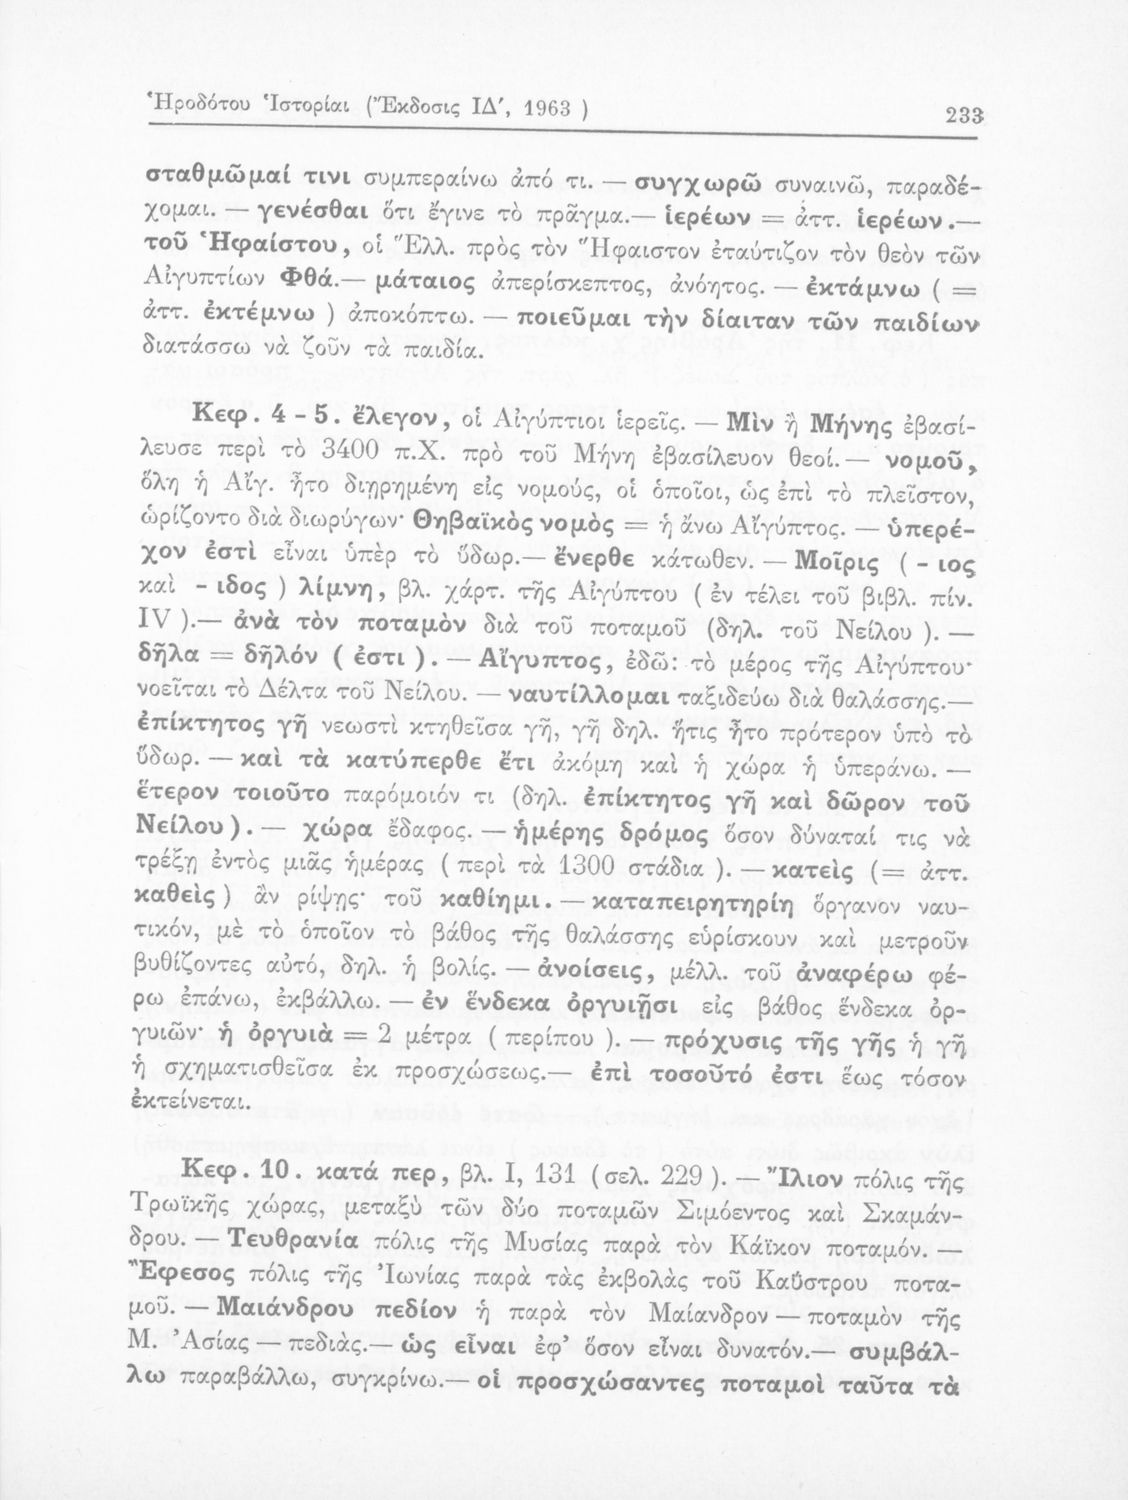 Ἡροδότου Ἱστορίαι (Ἔκδοσις ΙΔ′, 1963 ) 233
σταθμῶμαί τινι συμπεραίνω ἀπό τι. — συγχωρῶ συναινῶ, παραδέ-
χομαι. — γενέσθαι ὅτι ἔγινε τὸ πρᾶγμα.— ἱερέων = ἀττ. ἱερέων.—
τοῦ Ἡφαίστου, οἱ Ἕλλ. πρὸς τὸν Ἥφαιστον ἐταύτιζον τὸν θεὸν τῶν
Αἰγυπτίων Φθά.— μάταιος ἀπερίσκεπτος, ἀνόητος. — ἐκτάμνω ( =
ἀττ. ἐκτέμνω ) ἀποκόπτω. — ποιεῦμαι τὴν δίαιταν τῶν παιδίων
διατάσσω νὰ ζοῦν τὰ παιδία.
Κεφ. 4 - 5. ἔλεγον, οἱ Αἰγύπτιοι ἱερεῖς. — Μὶν ἢ Μήνης ἐβασί-
λευσε περὶ τὸ 3400 π.Χ. πρὸ τοῦ Μήνη ἐβασίλευον θεοί.— νομοῦ,
ὅλη ἡ Αἴγ. ἦτο διῃρημένη εἰς νομούς, οἱ ὁποῖοι, ὡς ἐπὶ τὸ πλεῖστον,
ὡρίζοντο διὰ διωρύγων· Θηβαϊκὸς νομὸς = ἡ ἄνω Αἴγύπτος. — ὑπερέ-
χον ἐστὶ εἶναι ὑπὲρ τὸ ὕδωρ.— ἔνερθε κάτωθεν. — Μοῖρις ( - ιος
καὶ - ιδος ) λίμνη, βλ. χάρτ. τῆς Αἰγύπτου ( ἐν τέλει τοῦ βιβλ. πίν.
IV ).— ἀνὰ τὸν ποταμὸν διὰ τοῦ ποταμοῦ (δηλ. τοῦ Νείλου ). —
δῆλα = δῆλόν ( ἐστι ). — Αἴγυπτος, ἐδῶ: τὸ μέρος τῆς Αἰγύπτου·
νοεῖται τὸ Δέλτα τοῦ Νείλου. — ναυτίλλομαι ταξιδεύω διὰ θαλάσσης.—
ἐπίκτητος γῆ νεωστὶ κτηθεῖσα γῆ, γῆ δηλ. ἥτις ἦτο πρότερον ὑπὸ τὸ
ὕδωρ. — καὶ τὰ κατύπερθε ἔτι ἀκόμη καὶ ἡ χώρα ἡ ὑπεράνω. —
ἕτερον τοιοῦτο παρόμοιόν τι (δηλ. ἐπίκτητος γῆ καὶ δῶρον τοῦ
Νείλου). — χώρα ἔδαφος. — ἡμέρης δρόμος ὅσον δύναταί τις νὰ
τρέξῃ ἐντὸς μιᾶς ἡμέρας ( περὶ τὰ 1300 στάδια ). — κατεὶς (= ἀττ.
καθεὶς ) ἂν ρίψῃς· τοῦ καθίημι. — καταπειρητηρίη ὄργανον ναυ-
τικόν, μὲ τὸ ὁποῖον τὸ βάθος τῆς θαλάσσης εὑρίσκουν καὶ μετροῦν
βυθίζοντες αὐτό, δηλ. ἡ βολίς. — ἀνοίσεις, μέλλ. τοῦ ἀναφέρω φέ-
ρω ἐπάνω, ἐκβάλλω. — ἐν ἕνδεκα ὀργυιῇσι εἰς βάθος ἕνδεκα ὀρ-
γυιῶν· ἡ ὀργυιὰ = 2 μέτρα ( περίπου ). — πρόχυσις τῆς γῆς ἡ γῆ
ἡ σχηματισθεῖσα ἐκ προσχώσεως.— ἐπὶ τοσοῦτό ἐστι ἕως τόσον
ἐκτείνεται.
Κεφ. 10. κατά περ, βλ. Ι, 131 (σελ. 229 ). — Ἴλιον πόλις τῆς
Τρωϊκῆς χώρας, μεταξὺ τῶν δύο ποταμῶν Σιμόεντος καὶ Σκαμάν-
δρου. — Τευθρανία πόλις τῆς Μυσίας παρὰ τὸν Κάϊκον ποταμόν. —
Ἔφεσος πόλις τῆς Ἰωνίας παρὰ τὰς ἐκβολὰς τοῦ Καΰστρου ποτα-
μοῦ. — Μαιάνδρου πεδίον ἡ παρὰ τὸν Μαίανδρον — ποταμὸν τῆς
Μ. Ἀσίας — πεδιὰς.— ὡς εἶναι ἐφ’ ὅσον εἶναι δυνατόν.— συμβάλ-
λω παραβάλλω, συγκρίνω.— οἱ προσχώσαντες ποταμοὶ ταῦτα τὰ